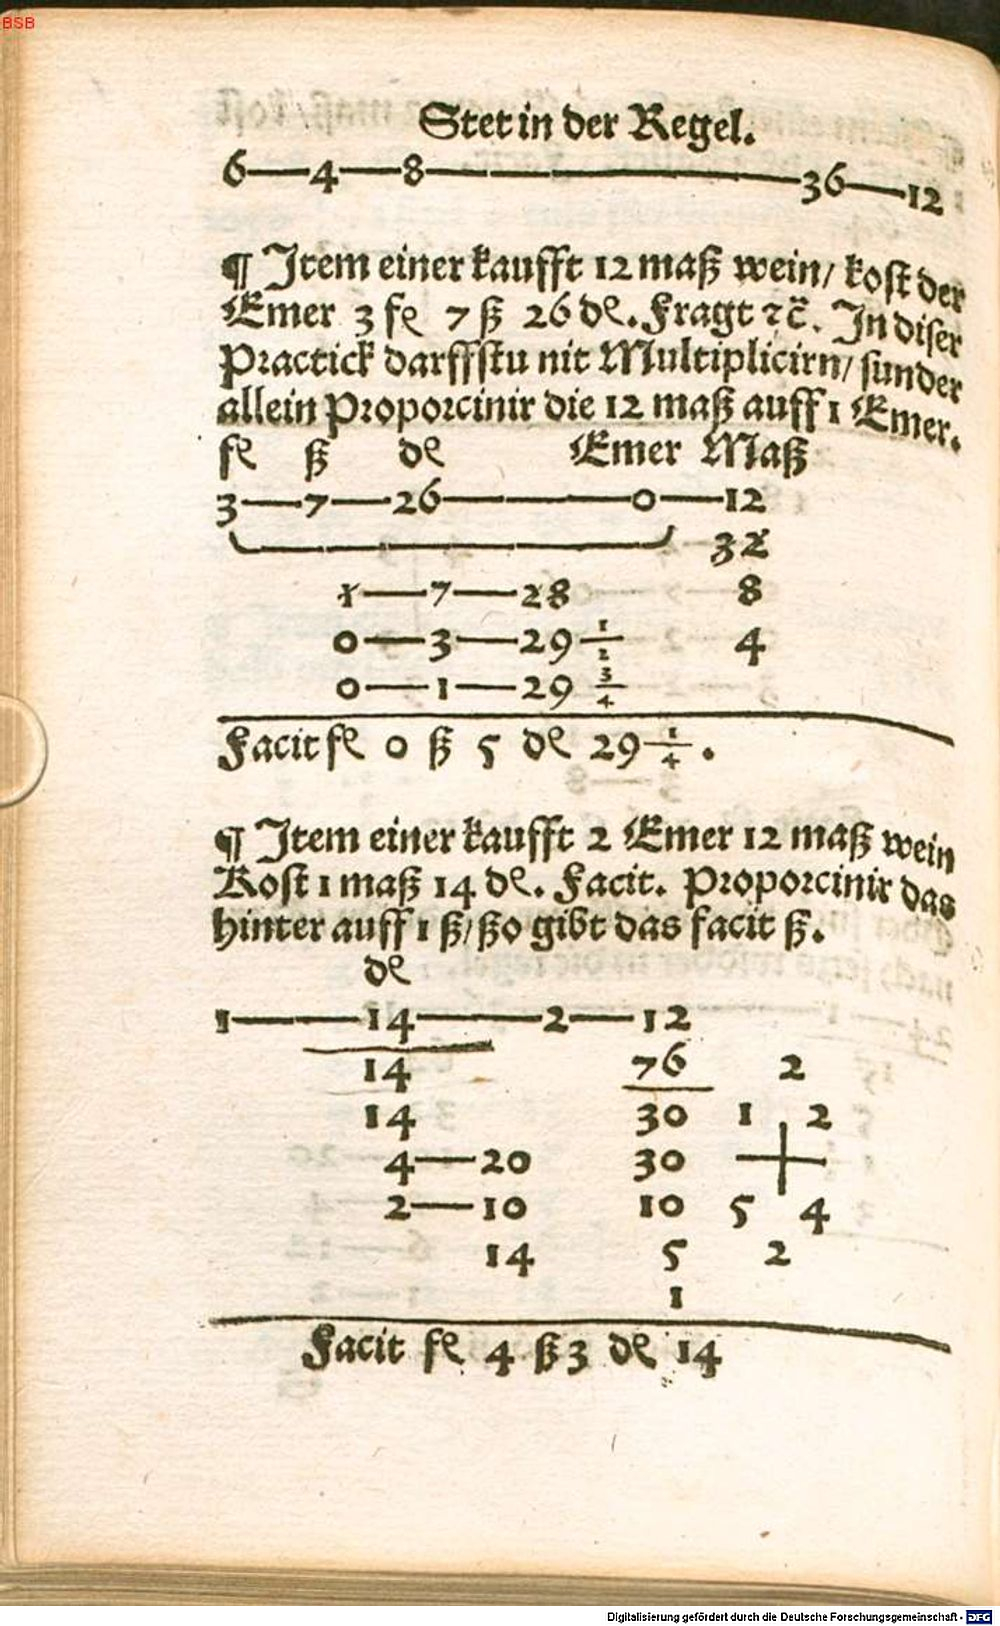 BSB
Stet in der Regel.
6—4—8———36—12
¶ Item einer kaufft 12 maß wein/ kost der
Emer 3 fl 7 ß 26 de. Fragt ⁊c̄. In diser
Practick darffstu nit Multiplicirn/ sunder
allein Proporcinir die 12 maß auff 1 Emer.
fl ß de Emer Maß
3—7—26———0—12
32
1—7—28 8
0—3—29 1/2 4
0—1—29 3/4
Facit fl 0 ß 5 de 29 1/4.
¶ Item einer kaufft 2 Emer 12 maß wein
Kost 1 maß 14 de. Facit. Proporcinir das
hinter auff 1 ß/ ßo gibt das facit ß.
de
1——14——2—12
14 76 2
14 30 1 2
4—20 30
2—10 10 5 4
14 5 2
1
Facit fl 4 ß 3 de 14
Digitalisierung gefördert durch die Deutsche Forschungsgemeinschaft - DFG